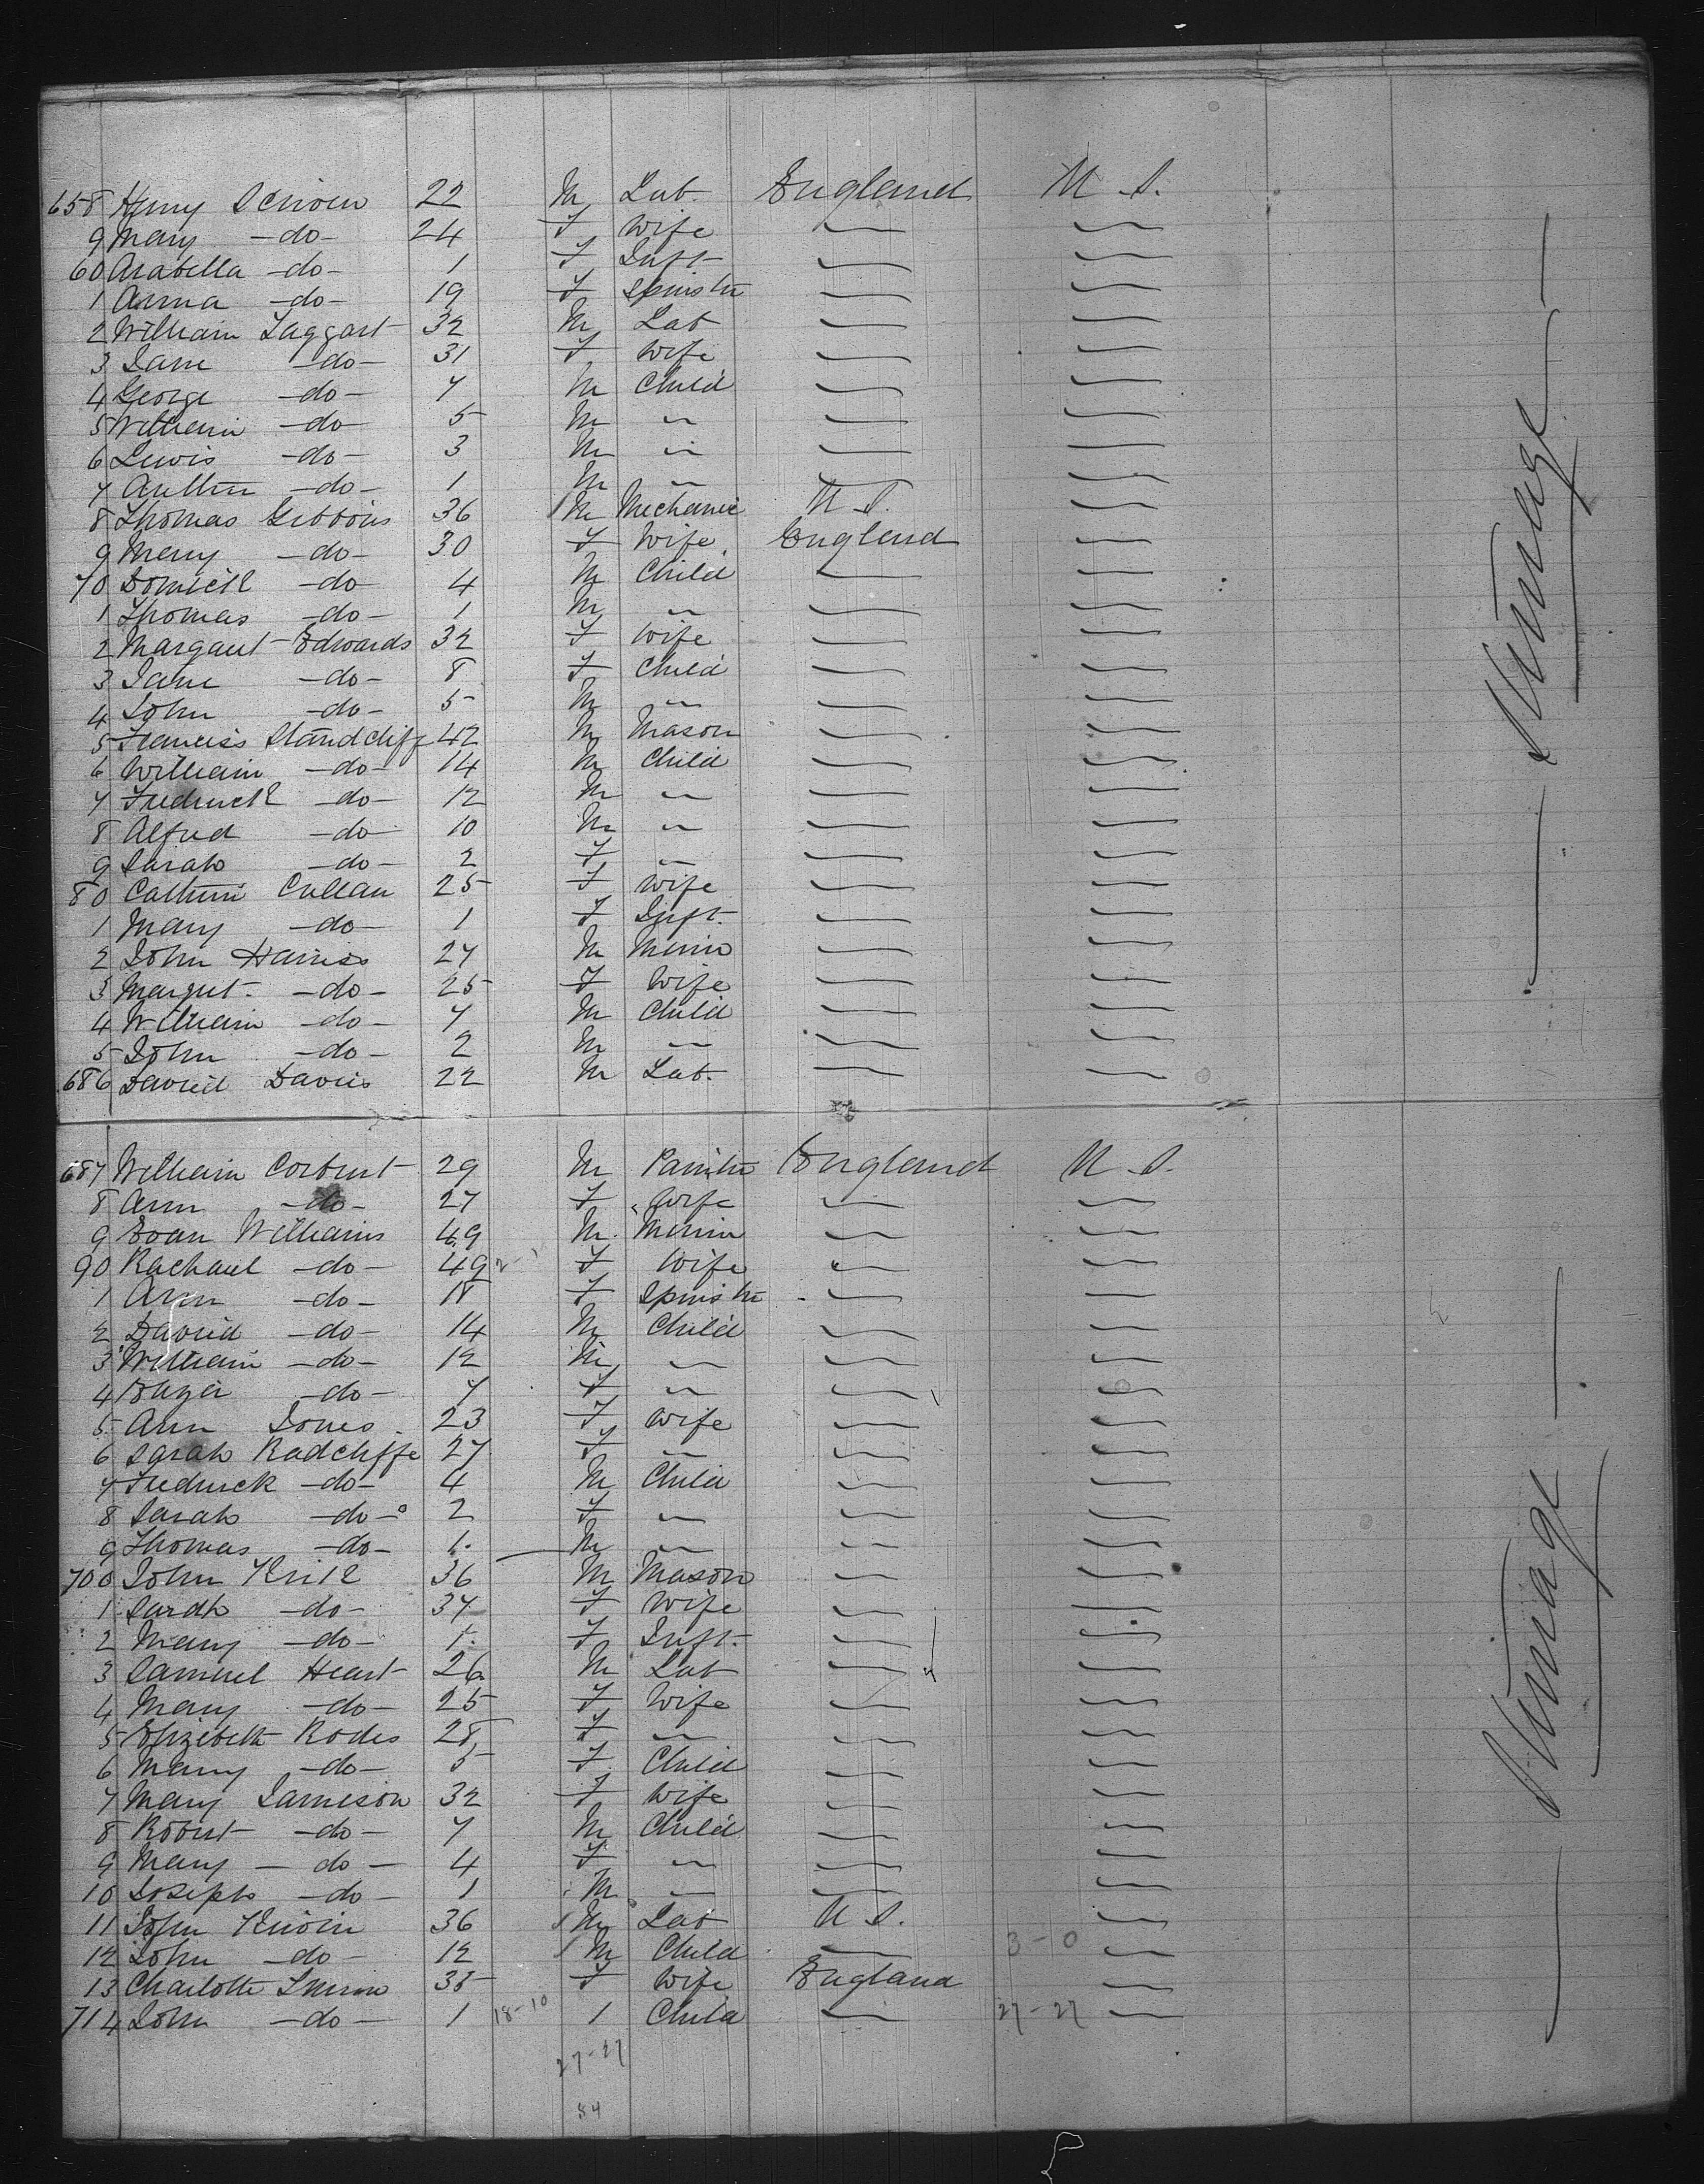 658 Henry 22 M Lab. England U S.
9 Mary -do- 24 F Wife
60 Arabella -do- 1 F Inft
1 Anna -do- 19 F Spinstr
2 William Taggart 32 M Lab
3 Jane -do- 31 F Wife
4 George -do- 7 M Child
5 William -do- 5 M "
6 Lewis -do- 3 M "
7 Arthur -do- 1 M "
8 Thomas Gibbons 36 M Mechanic U S.
9 Mary -do- 30 F Wife England
70 Dominick -do- 4 M Child
1 Thomas -do- 1 M "
2 Margaret Edwards 32 F Wife
3 Jane -do- 8 F Child
4 John -do- 5 M "
5 Francis Standcliff 42 M Mason
6 William -do- 14 M Child
7 Fredrick -do- 12 M "
8 Alfred -do- 10 M "
9 Sarah -do- 2 F "
80 Cathrine Cullan 25 F Wife
1 Mary -do- 1 F Inft.
2 John Harriss 27 M Miner
3 Margret. -do- 25 F Wife
4 William -do- 7 M Child
5 John -do- 2 M "
686 David Davis 22 M Lab.
Steerage
687 William Corbert 29 M Painter England U S.
8 Ann -do- 27 F Wife
9 Evan Williams 49 M. Miner
90 Rachael -do- 49 F Wife
1 Ann -do- 18 F Spinstr
2 David -do- 14 M Child
3 William -do- 12 M "
4 Eliza -do- 7 F "
5 Ann Jones 23 F Wife
6 Sarah Radcliffe 27 F "
7 Fredrick -do- 4 M Child
8 Sarah -do- 2 F "
9 Thomas -do- 1. M "
700 John 36 M Mason
1 Sarah -do- 37 F Wife
2 Mary -do- 1. F Inft.
3 Samuel Heart 26 M Lab
4 Mary -do- 25 F Wife
5 Elizibeth Rodes 28 F "
6 Mary -do- 5 F Child
7 Mary Jamieson 32 F Wife
8 Robert -do- 7 M Child
9 Mary - do - 4 F "
10 Joseph -do- 1 M "
11 John 36 M Lab U S.
12 John -do- 12 M Child 3-0
13 Charlotte 35 F Wife England
714 John -do- 1 18-10 1 Child 27-27
27-27
54
Steerage